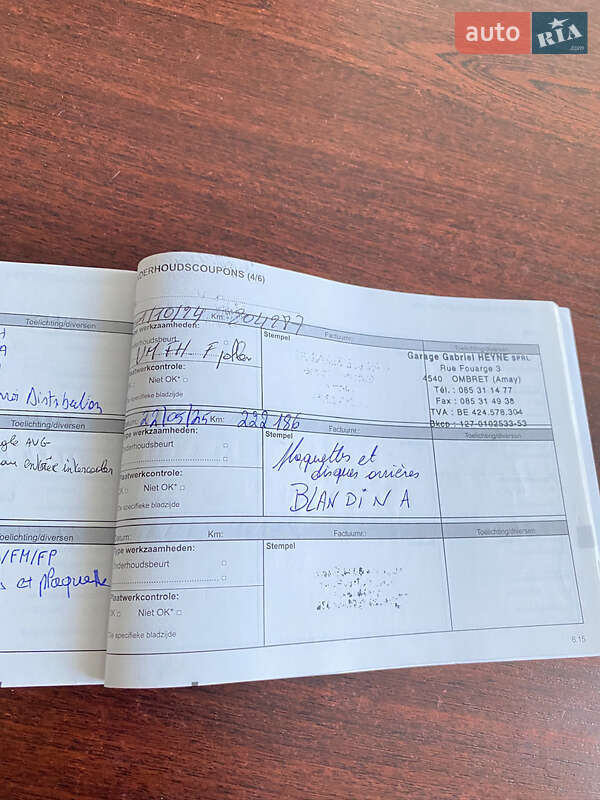 auto RIA .com
ONDERHOUDSCOUPONS (4/6)
Toelichting/diversen
Distribution
Toelichting/diversen
Toelichting/diversen
/FM/FP
et plaquette
/10/24 Km: 204997
type werkzaamheden:
Onderhoudsbeurt
VM FH F pollen
Plaatwerkcontrole:
OK □ Niet OK* □
*Zie specifieke bladzijde
Stempel
Factuurnr.:
Toelichting/diversen
Garage Gabriel HEYNE SPRL
Rue Fouarge 3
4540 OMBRET (Amay)
Tél. : 085 31 14 77
Fax : 085 31 49 38
TVA : BE 424.578.304
Bkcp : 127-0102533-53
Datum: 22/05/25 Km: 222 186
Type werkzaamheden:
Onderhoudsbeurt □
□
Plaatwerkcontrole:
OK □ Niet OK* □
*Zie specifieke bladzijde
Stempel
Factuurnr.:
Toelichting/diversen
Plaquettes et
disques arrières
BLANDINA
Datum: Km:
Type werkzaamheden:
Onderhoudsbeurt □
□
Plaatwerkcontrole:
OK □ Niet OK* □
*Zie specifieke bladzijde
Stempel
Factuurnr.:
Toelichting/diversen
6.15